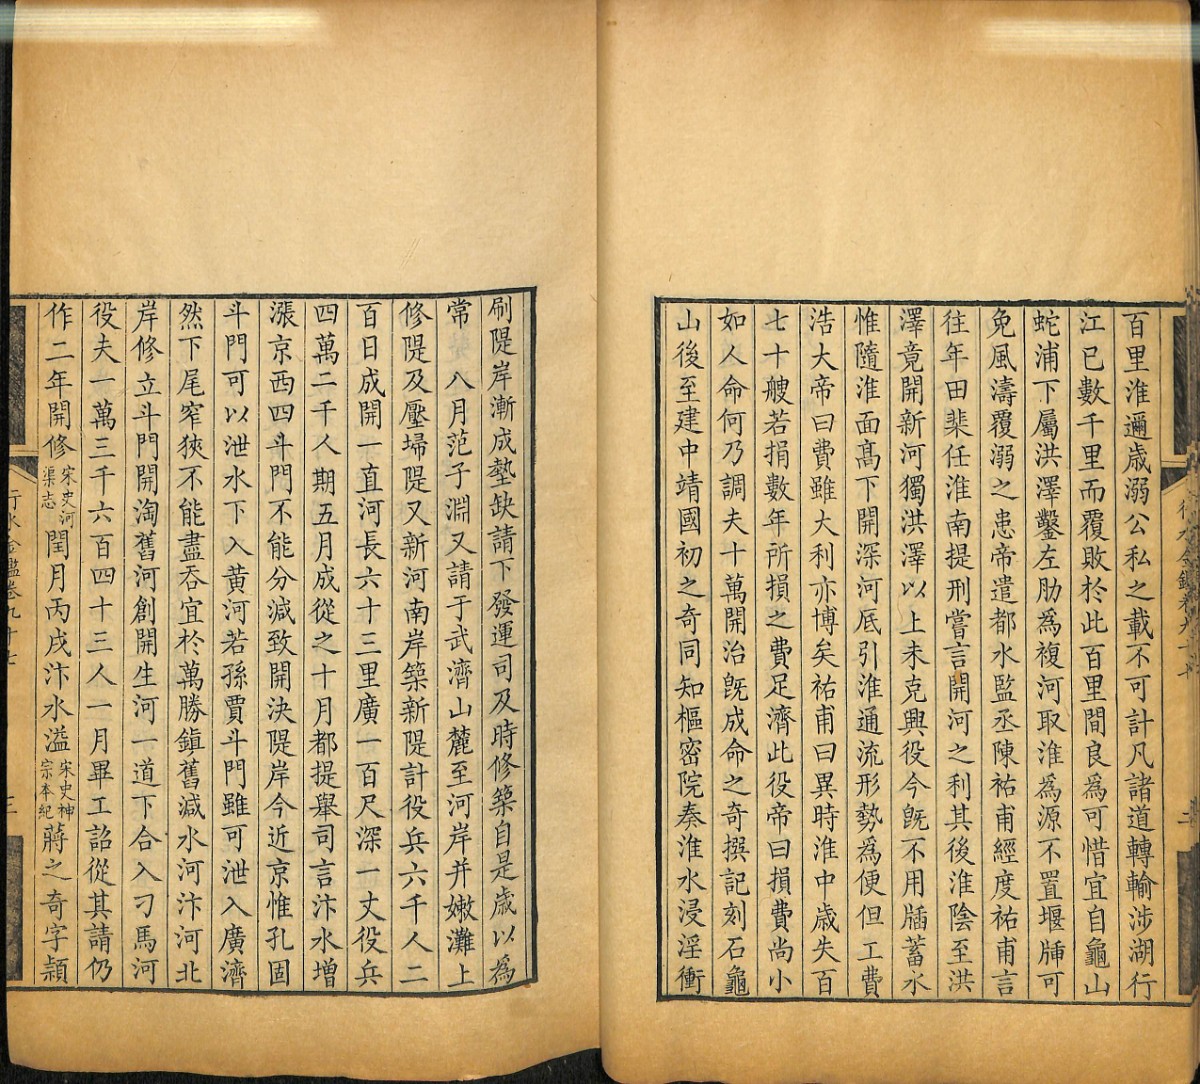 百里淮邇歲溺公私之載不可計凡諸道轉輸涉湖行
江已數千里而覆敗於此百里間良為可惜宜自龜山
蛇浦下屬洪澤鑿左肋為複河取淮為源不置堰牐可
免風濤覆溺之患帝遣都水監丞陳祐甫經度祐甫言
往年田棐任淮南提刑嘗言開河之利其後淮陰至洪
澤竟開新河獨洪澤以上未克興役今既不用牐蓄水
惟隨淮面高下開深河底引淮通流形勢為便但工費
浩大帝曰費雖大利亦博矣祐甫曰異時淮中歲失百
七十艘若捐數年所損之費足濟此役帝曰損費尚小
如人命何乃調夫十萬開治既成命之奇撰記刻石龜
山後至建中靖國初之奇同知樞密院奏淮水浸淫衝
刷隄岸漸成墊缺請下發運司及時修築自是歲以為
常 八月范子淵又請于武濟山麓至河岸并嫩灘上
修隄及壓埽隄又新河南岸築新隄計役兵六千人二
百日成開一直河長六十三里廣一百尺深一丈役兵
四萬二千人期五月成從之十月都提舉司言汴水增
漲京西四斗門不能分減致開決隄岸今近京惟孔固
斗門可以泄水下入黃河若孫賈斗門雖可泄入廣濟
然下尾窄狹不能盡吞宜於萬勝鎮舊減水河汴河北
岸修立斗門開淘舊河創開生河一道下合入刁馬河
役夫一萬三千六百四十三人一月畢工詔從其請仍
作二年開修宋史河渠志閏月丙戌汴水溢宋史神宗本紀蔣之奇字穎
行水金鑑卷九十七
三